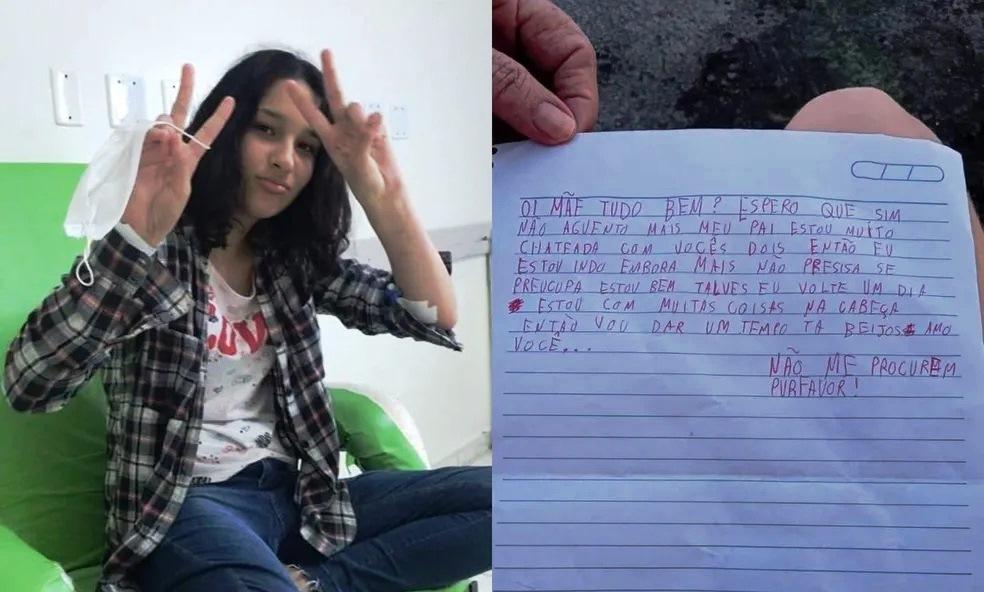 LOV
OI MÃE TUDO BEM? ESPERO QUE SIM
NÃO AGUENTO MAIS MEU PAI ESTOU MUITO
CHATEADA COM VOCÊS DOIS ENTÃO EU
ESTOU INDO EMBORA MAIS NÃO PRESISA SE
PREUCUPA ESTOU BEM TALVES EU VOLTE UM DIA
ESTOU COM MUITAS COISAS NA CABEÇA
ENTÃO VOU DAR UM TEMPO TÁ BEIJOS AMO
VOCÊ...
NÃO ME PROCUREM
PURFAVOR!